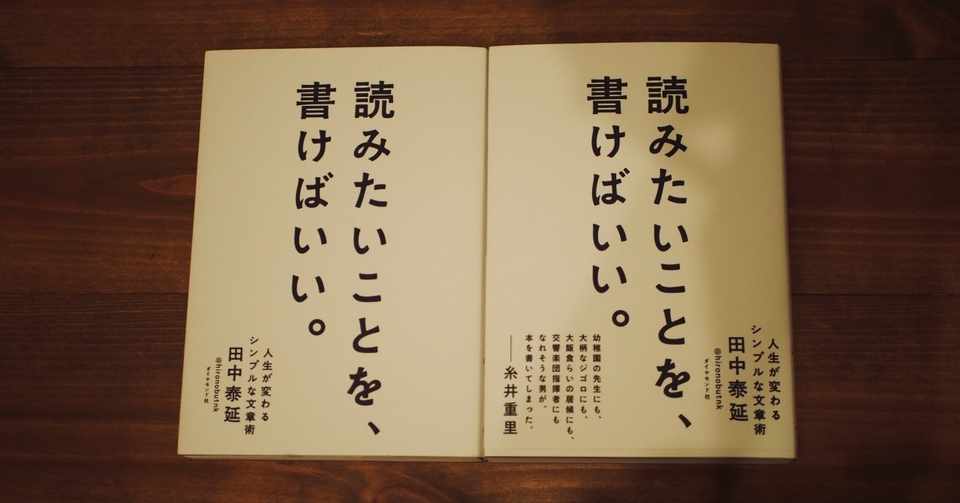 読みたいことを、
書けばいい。
人生が変わる
シンプルな文章術
田中泰延
@hironobutnk
ダイヤモンド社
読みたいことを、
書けばいい。
人生が変わる
シンプルな文章術
田中泰延
@hironobutnk
ダイヤモンド社
幼稚園の先生にも、
大柄なジゴロにも、
大飯食らいの居候にも、
交響楽団指揮者にも
なれそうな男が、
本を書いてしまった。
――糸井重里